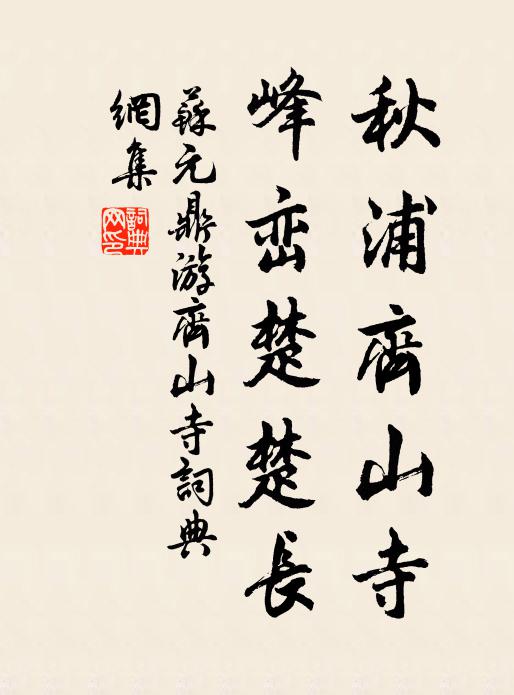 秋浦齊山寺
峰峦楚楚長
蘇元鼎游齊山寺詞典
網集
詞典網印